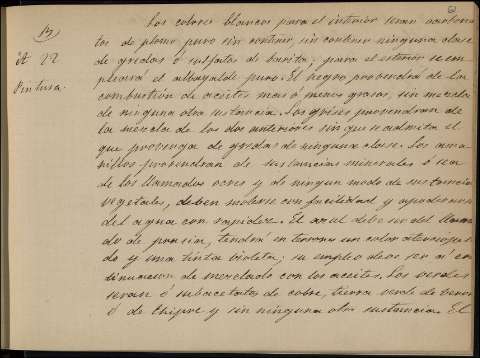 Los colores blancos para el interior seran carbona-
tos de plomo puro sin contener, sin contener ninguna clase
de gredas ó sulfatos de barita; para el exterior se em-
pleará el albayalde puro. El negro provendrá de la
combustión de aceites mas ó menos grasos, sin mezcla
de ninguna otra sustancia. Los grises provendran de
la mezcla de los dos anteriores sin que se admita el
que provenga de gredas de ninguna clase. Los ama-
rillos provendran de sustancias minerales ó sea
de los llamados ocres y de ningun modo de sustancias
vegetales, deben molerse con facilidad y apoderarse
del agua con rapidez. El azul debe ser del llama-
do de prusia, tendrá en terron un color aterciopela-
do y una tinta violeta; su empleo debe ser á con-
tinuacion de mezclado con los aceites. Los verdes
seran ó subacetatos de cobre, tierra verde de
ó de Chipre y sin ninguna otra sustancia. El
Aº 22
Pintura.